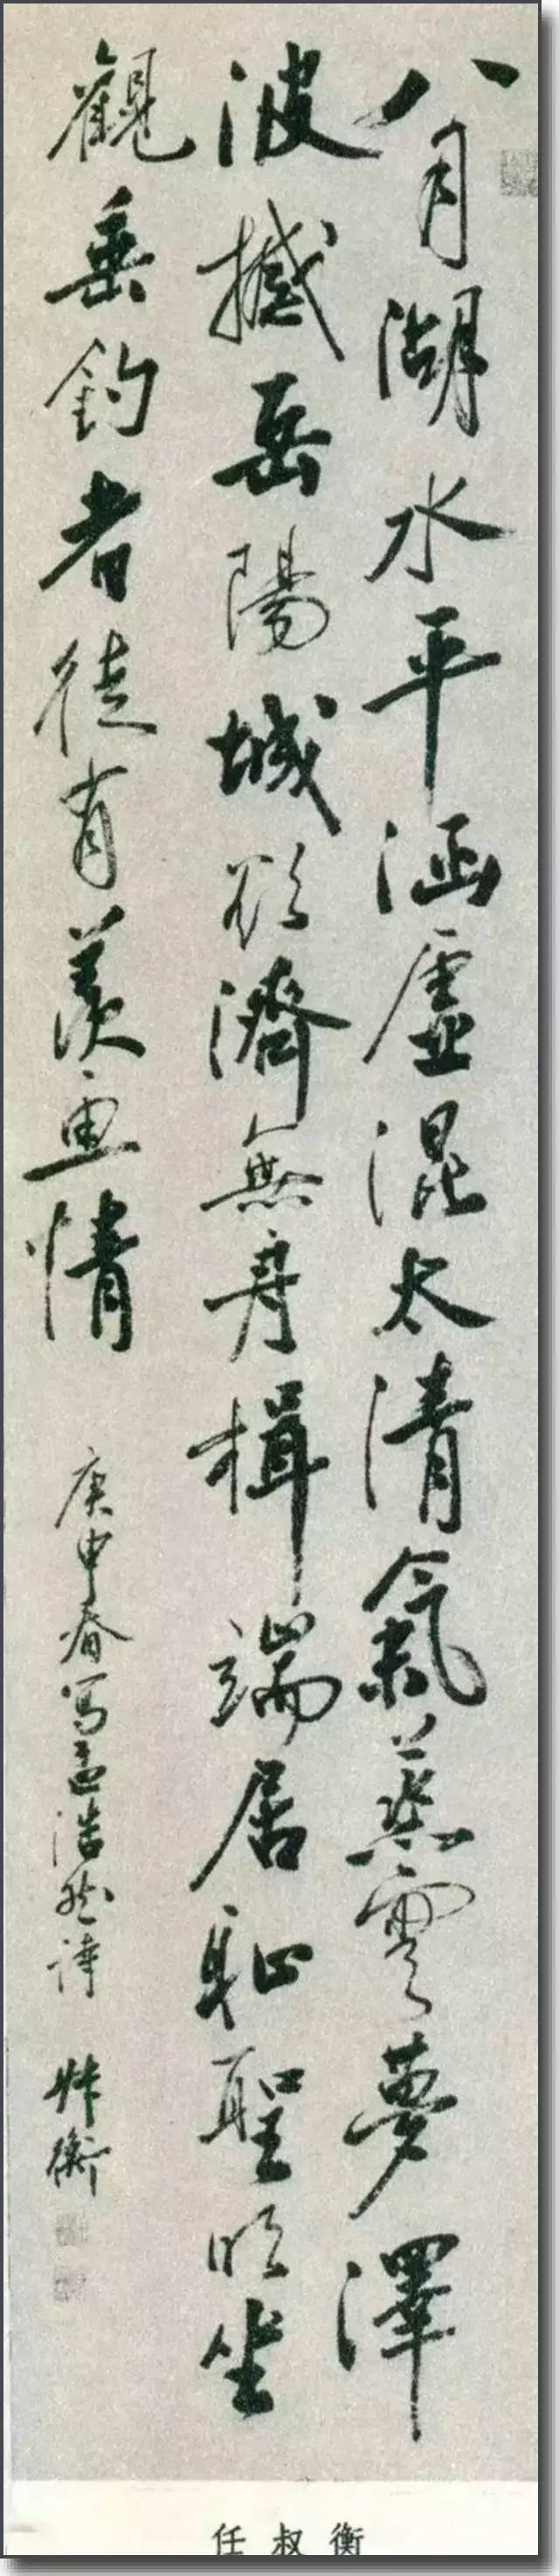 八月湖水平涵虛混太清氣蒸雲夢澤
波撼岳陽城欲濟無舟楫端居耻聖明坐
觀垂釣者徒有羨魚情
庚申春写孟浩然诗 叔衡
任叔衡